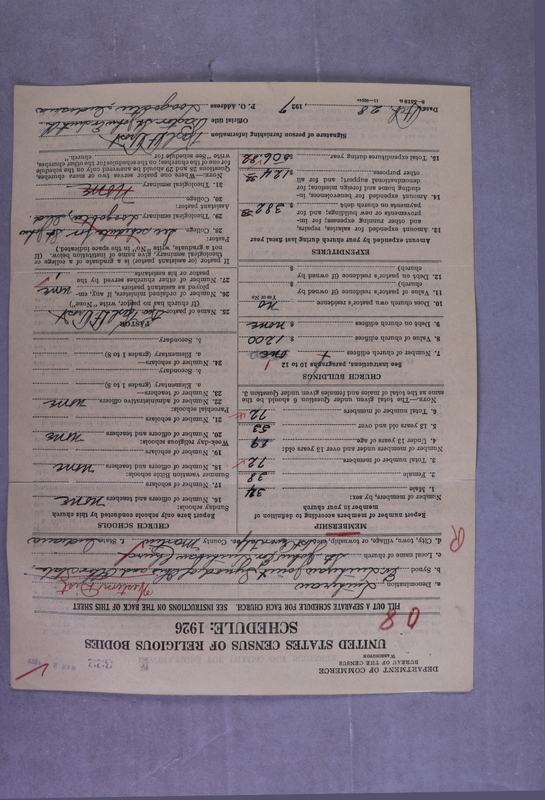 DEPARTMENT OF COMMERCE
BUREAU OF THE CENSUS
WASHINGTON
UNITED STATES CENSUS OF RELIGIOUS BODIES
SCHEDULE: 1926
08
FILL OUT A SEPARATE SCHEDULE FOR EACH CHURCH. SEE INSTRUCTIONS ON THE BACK OF THIS SHEET
a. Denomination Lutheran
Western Dist
b. Synod Ev. Lutheran Joint Synod of Ohio and Other States
c. Local name of church St. John's
d. City, town, village, or township County Martin State Indiana
R
MEMBERSHIP
Report number of members according to definition of member in your church
Number of members, by sex:
1. Male 34
2. Female 38
3. Total number of members 72
Number of members under and over 13 years old:
4. Under 13 years of age 19
5. 13 years old and over 53
6. Total number of members 72
NOTE.—The total given under Question 6 should be the same as the total of males and females given under Question 3.
CHURCH BUILDINGS
See instructions, paragraphs 10 to 12
7. Number of church edifices one
8. Value of church edifices $ 1200
9. Debt on church edifices $ none
10. Does church own pastor's residence no
Yes or No
11. Value of pastor's residence (if owned by church) $
12. Debt on pastor's residence (if owned by church) $
EXPENDITURES
Amount expended by your church during last fiscal year
13. Amount expended for salaries, repairs, and other running expenses; for improvements or new buildings; and for payments on church debt $ 382
14. Amount expended for benevolences, including home and foreign missions; for denominational support; and for all other purposes $ 124
15. Total expenditures during year $ 506.82
CHURCH SCHOOLS
Report here only schools conducted by this church
Sunday schools:
16. Number of officers and teachers none
17. Number of scholars
Summer vacation Bible schools:
18. Number of officers and teachers none
19. Number of scholars
Week-day religious schools:
20. Number of officers and teachers none
21. Number of scholars
Parochial schools:
22. Number of administrative officers none
23. Number of teachers—
a. Elementary (grades 1 to 8)
b. Secondary
24. Number of scholars—
a. Elementary (grades 1 to 8)
b. Secondary
PASTOR
25. Name of pastor
(If church has no pastor, write "None")
26. Number of ordained ministers, if any, employed as assistant pastors none
27. Number of other churches served by the pastor or his assistants 1
If pastor (or pastors) is a graduate of a college or theological seminary, give name of institution below. (If not a graduate, write "No," in the space indicated.)
Pastor:
28. College See schedule for St. John
29. Theological seminary
20. College
21. Theological seminary
NOTE.—Where one pastor serves two or more churches, Questions 28 and 29 should be answered only on the schedule for one of the churches; on the schedules for the other churches, write "See schedule for church."
Signature of person furnishing information
Official title Pastor
Date 28, 1927
P. O. Address Loogootee, Indiana